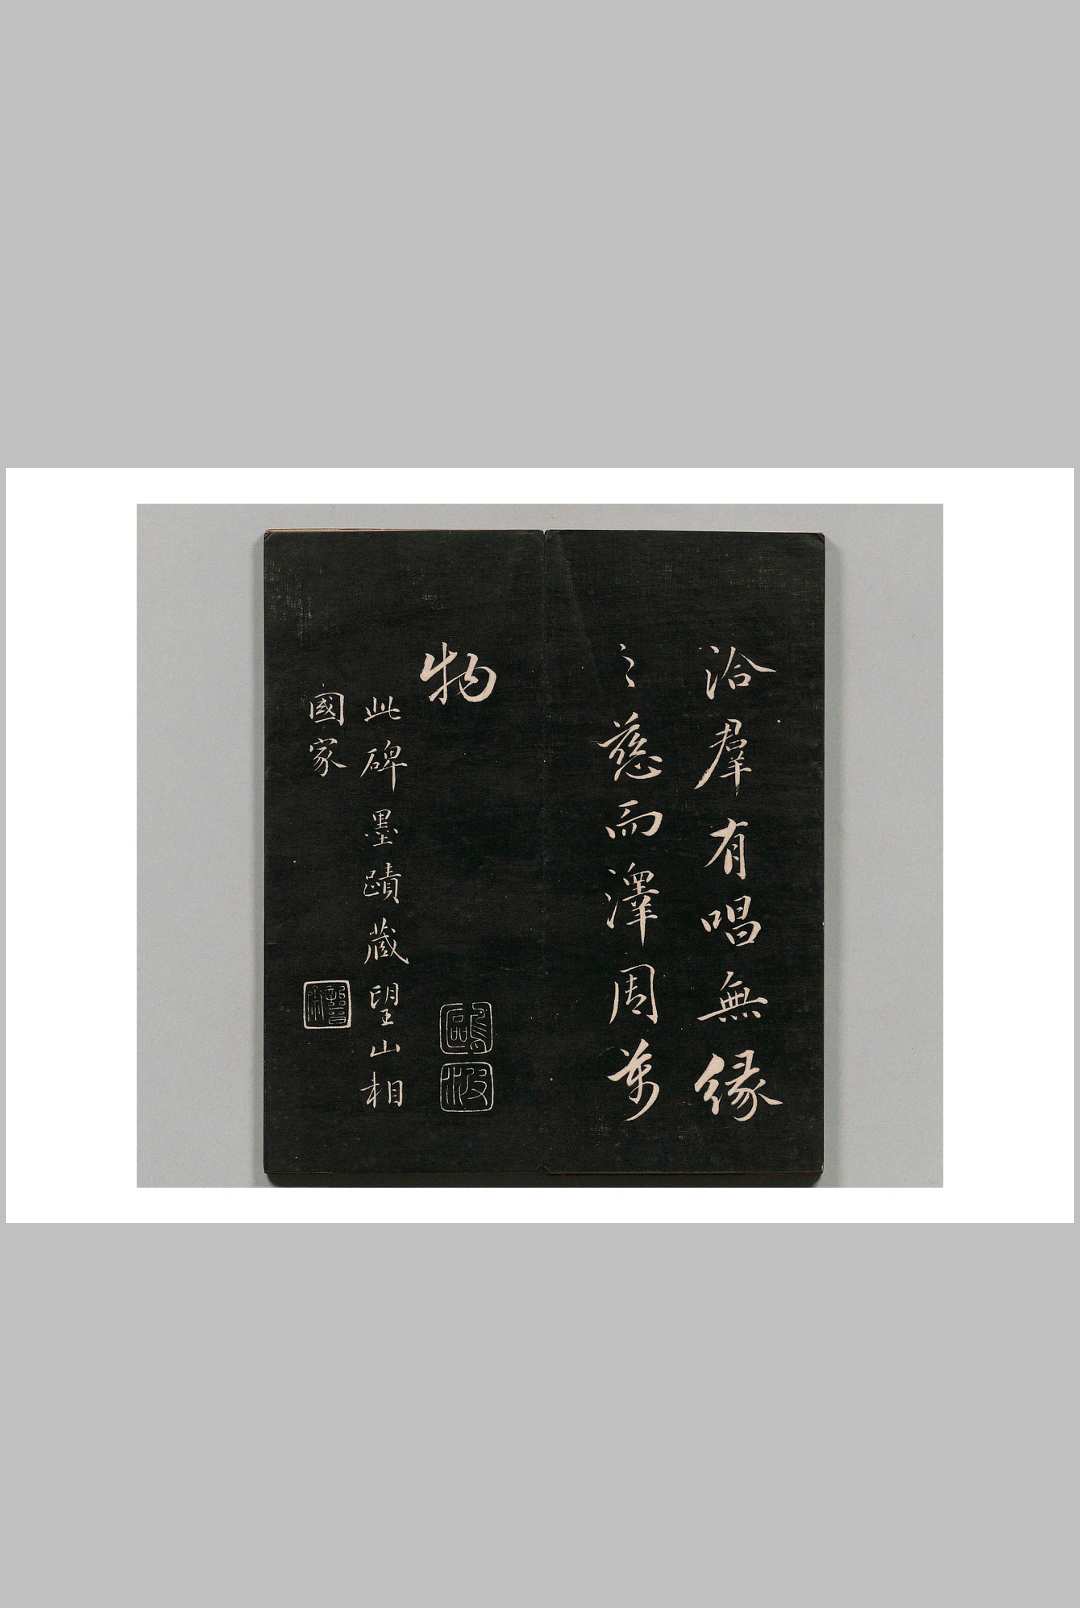 洽羣有唱無緣
之慈而澤周萬
物
鷗波
此碑墨蹟藏望山相
國家